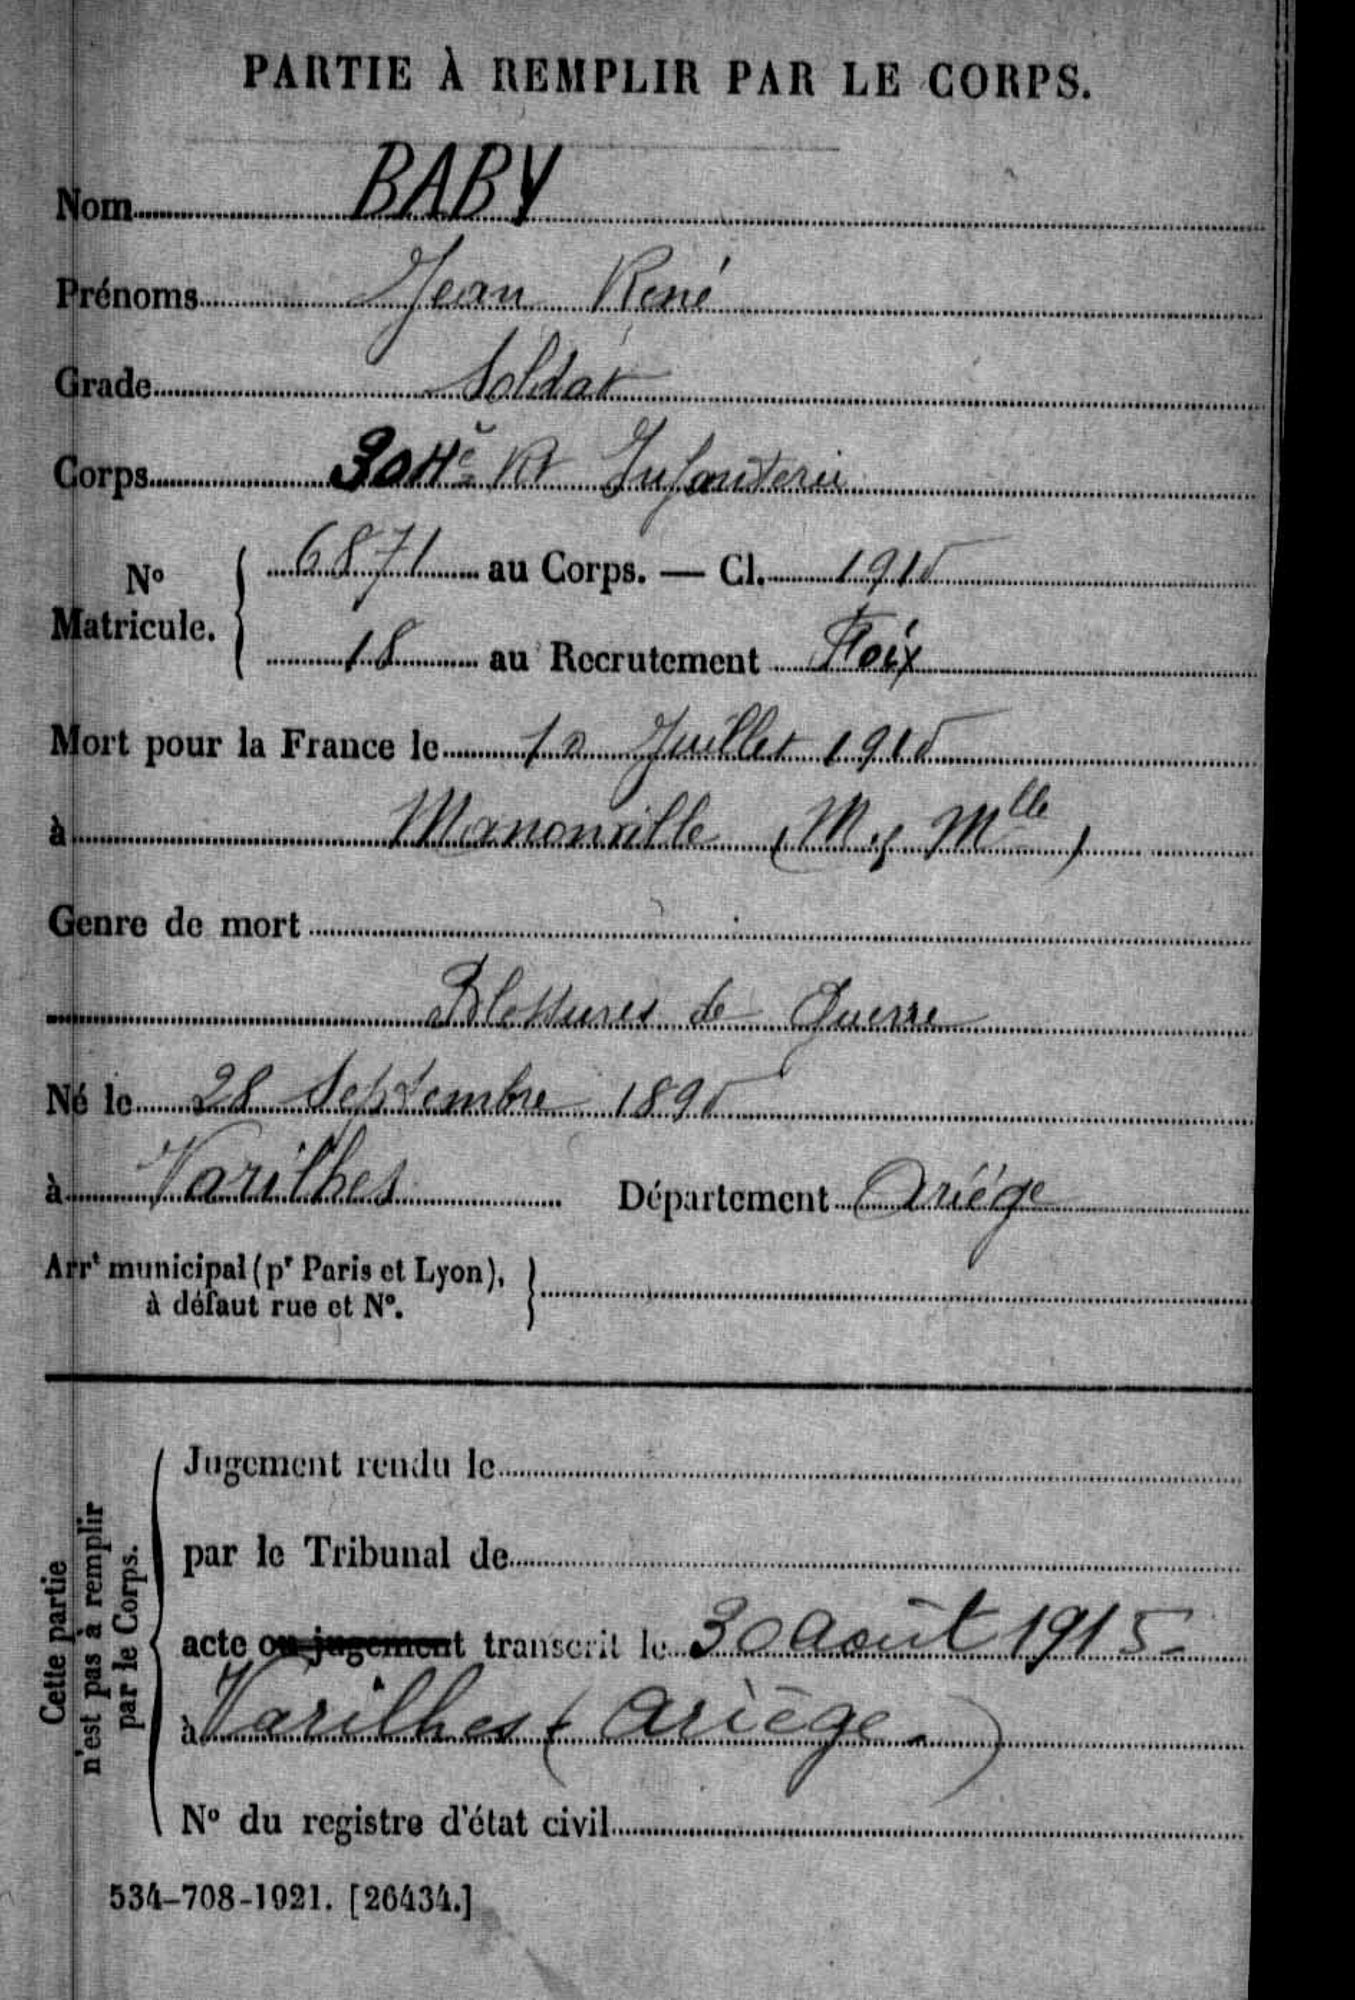 PARTIE À REMPLIR PAR LE CORPS.
Nom BABY
Prénoms Jean René
Grade Soldat
Corps Rt Infanterie
N° Matricule. 6871 au Corps. — Cl. 1915
18 au Recrutement Foix
Mort pour la France le Juillet 1915
à Manonville (M. & Mlle)
Genre de mort
Blessures de Guerre
Né le 28 Septembre 1895
à Varilhes Département Ariège
Arrt municipal (pr Paris et Lyon),
à défaut rue et N°.
Cette partie
n'est pas à remplir
par le Corps.
Jugement rendu le
par le Tribunal de
acte ou jugement transcrit le 30 août 1915
à Varilhes (Ariège.)
N° du registre d'état civil
534-708-1921. [26434.]